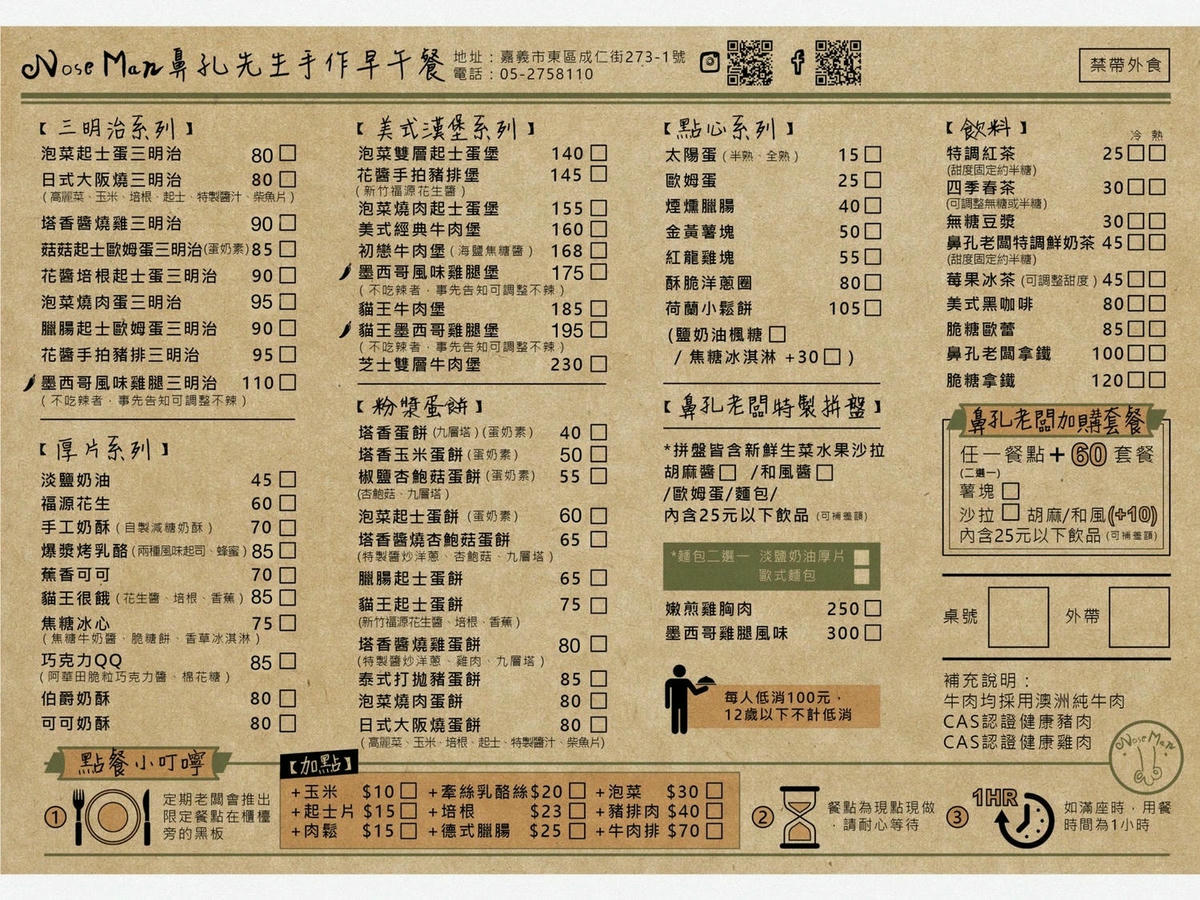 Nose Man鼻孔先生手作早午餐
地址：嘉義市東區成仁街273-1號
電話：05-2758110
禁帶外食
【三明治系列】
泡菜起士蛋三明治 80
日式大阪燒三明治 80
(高麗菜、玉米、培根、起士、特製醬汁、柴魚片)
塔香醬燒雞三明治 90
菇菇起士歐姆蛋三明治(蛋奶素) 85
花醬培根起士蛋三明治 90
泡菜燒肉蛋三明治 95
臘腸起士歐姆蛋三明治 90
花醬手拍豬排三明治 95
墨西哥風味雞腿三明治 110
(不吃辣者，事先告知可調整不辣)
【厚片系列】
淡鹽奶油 45
福源花生 60
手工奶酥(自製減糖奶酥) 70
爆漿烤乳酪(兩種風味起司、蜂蜜) 85
蕉香可可 70
貓王很餓(花生醬、培根、香蕉) 85
焦糖冰心 75
(焦糖牛奶醬、脆糖餅、香草冰淇淋)
巧克力QQ 85
(阿華田脆粒巧克力醬、棉花糖)
伯爵奶酥 80
可可奶酥 80
【美式漢堡系列】
泡菜雙層起士蛋堡 140
花醬手拍豬排堡 145
(新竹福源花生醬)
泡菜燒肉起士蛋堡 155
美式經典牛肉堡 160
初戀牛肉堡(海鹽焦糖醬) 168
墨西哥風味雞腿堡 175
(不吃辣者，事先告知可調整不辣)
貓王牛肉堡 185
貓王墨西哥雞腿堡 195
(不吃辣者，事先告知可調整不辣)
芝士雙層牛肉堡 230
【粉漿蛋餅】
塔香蛋餅(九層塔)(蛋奶素) 40
塔香玉米蛋餅(蛋奶素) 50
椒鹽杏鮑菇蛋餅(蛋奶素) 55
(杏鮑菇、九層塔)
泡菜起士蛋餅(蛋奶素) 60
塔香醬燒杏鮑菇蛋餅 65
(特製醬炒洋蔥、杏鮑菇、九層塔)
臘腸起士蛋餅 65
貓王起士蛋餅 75
(新竹福源花生醬、培根、香蕉)
塔香醬燒雞蛋餅 80
(特製醬炒洋蔥、雞肉、九層塔)
泰式打拋豬蛋餅 85
泡菜燒肉蛋餅 80
日式大阪燒蛋餅 80
(高麗菜、玉米、培根、起士、特製醬汁、柴魚片)
【點心系列】
太陽蛋(半熟、全熟) 15
歐姆蛋 25
煙燻臘腸 40
金黃薯塊 50
紅龍雞塊 55
酥脆洋蔥圈 80
荷蘭小鬆餅 105
(鹽奶油楓糖
/ 焦糖冰淇淋 +30 )
【鼻孔老闆特製拼盤】
*拼盤皆含新鮮生菜水果沙拉
胡麻醬 /和風醬
/歐姆蛋/麵包/
內含25元以下飲品(可補差額)
*麵包二選一 淡鹽奶油厚片
歐式麵包
嫩煎雞胸肉 250
墨西哥雞腿風味 300
每人低消100元，
12歲以下不計低消
【飲料】
冷 熱
特調紅茶 25
(甜度固定約半糖)
四季春茶 30
(可調整無糖或半糖)
無糖豆漿 30
鼻孔老闆特調鮮奶茶 45
(甜度固定約半糖)
莓果冰茶(可調整甜度) 45
美式黑咖啡 80
脆糖歐蕾 85
鼻孔老闆拿鐵 100
脆糖拿鐵 120
鼻孔老闆加購套餐
任一餐點+60套餐
(二選一)
薯塊
沙拉 胡麻/和風(+10)
內含25元以下飲品(可補差額)
桌號 外帶
補充說明：
牛肉均採用澳洲純牛肉
CAS認證健康豬肉
CAS認證健康雞肉
Nose Man
點餐小叮嚀
① 定期老闆會推出
限定餐點在櫃檯
旁的黑板
【加點】
+玉米 $10 +牽絲乳酪絲$20 +泡菜 $30
+起士片 $15 +培根 $23 +豬排肉 $40
+肉鬆 $15 +德式臘腸 $25 +牛肉排 $70
② 餐點為現點現做
，請耐心等待
③ 1HR 如滿座時，用餐
時間為1小時